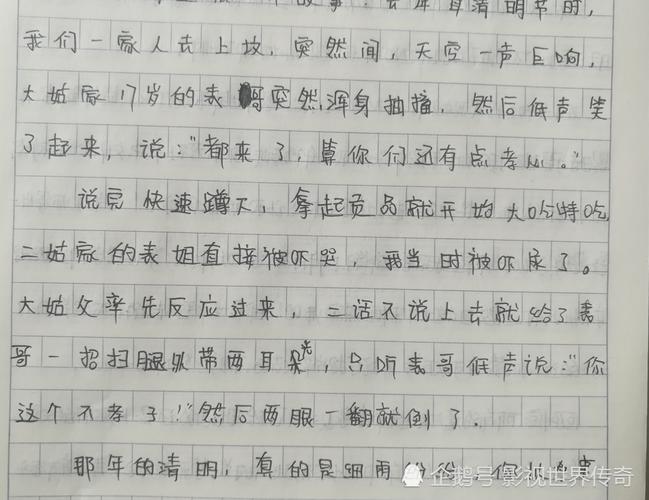 去年清明节时，
我们一家人去上坟，突然间，天空一声巨响，
大姑家17岁的表哥突然浑身抽搐，然后低声笑
了起来，说：“都来了，算你们还有点孝心。”
说完快速蹲下，拿起贡品就开始大吃特吃
二姑家的表姐直接被吓哭，我当时被吓尿了。
大姑父率先反应过来，二话不说上去就给了表
哥一招扫腿外带两耳光，只听表哥低声说：“你
这个不孝子！”然后两眼一翻就倒了．
那年的清明，真的是细雨纷纷，你
企鹅号 影视世界传奇